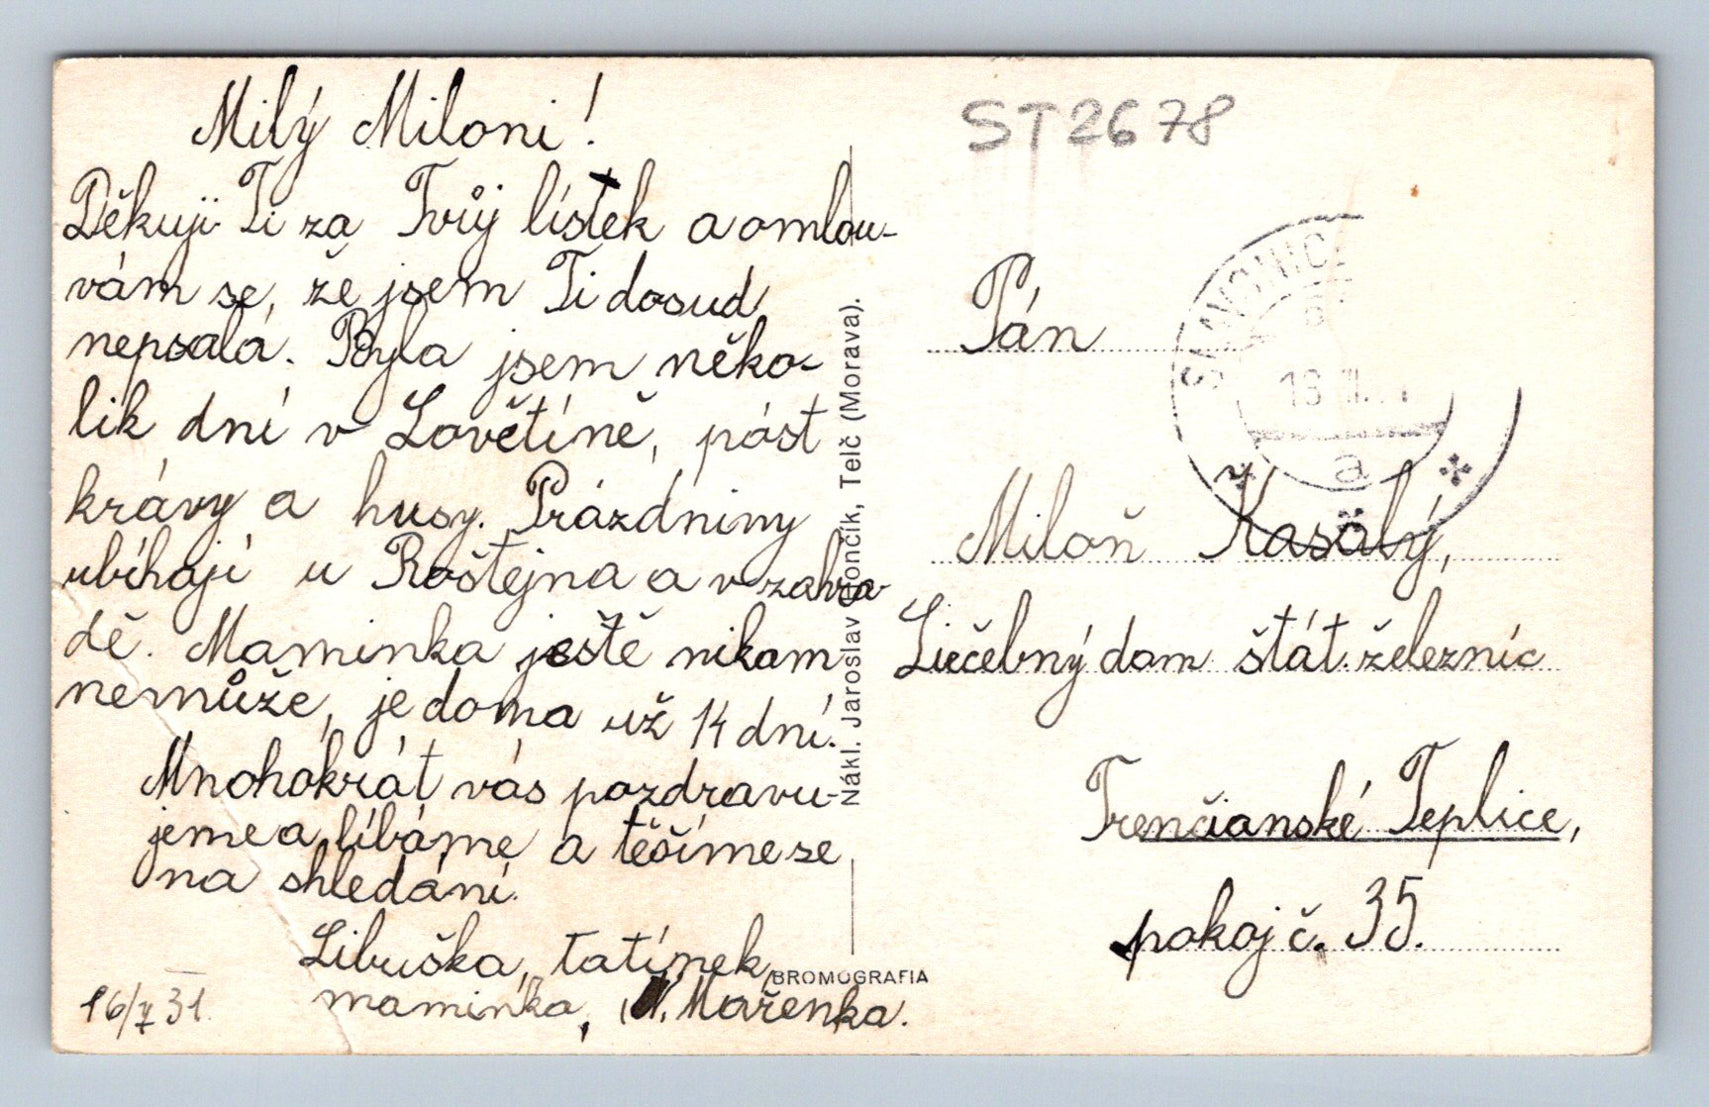 Milý Miloni!
Děkuji Ti za Tvůj lístek a omlou-
vám se, že jsem Ti dosud
nepsala. Byla jsem něko-
lik dní v Lovětíně, pást
krávy a husy. Prázdniny
ubíhají u Roštejna a v zahra-
dě. Maminka ještě nikam
nemůže, je doma už 14 dní.
Mnohokrát vás pozdravu-
jeme a líbáme a těšíme se
na shledání.
Libuška, tatínek,
maminka, Mařenka.
16/7 31.
Nákl. Jaroslav Jončík, Telč (Morava).
BROMOGRAFIA
ST2678
SLAVONICE
a
Pán
Miloň Kasalý,
Liečebný dom štát. železníc
Trenčianské Teplice,
pokoj č. 35.